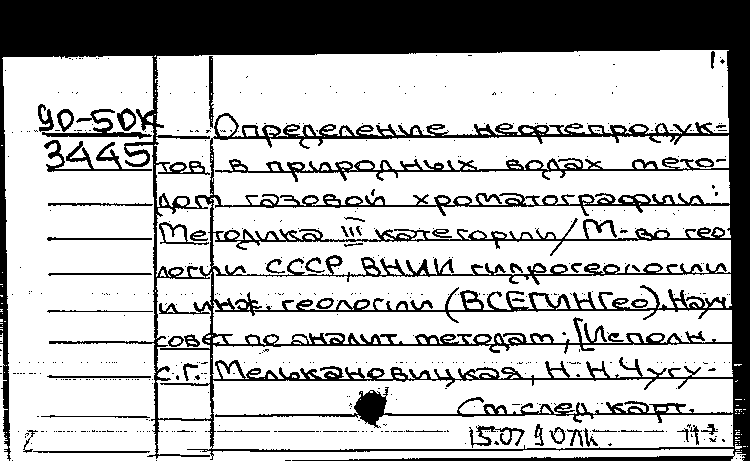 1.
90-5DK
3445
Определение нефтепродук-
тов в природных водах мето-
дом газовой хроматографии:
Методика III категории / М-во гео-
логии СССР, ВНИИ гидрогеологии
и инж. геологии (ВСЕГИНГео). Науч.
совет по аналит. методам; [Исполн.
С.Г. Мелькановицкая, Н.Н. Чугу-
См. след. карт.
15.07 90